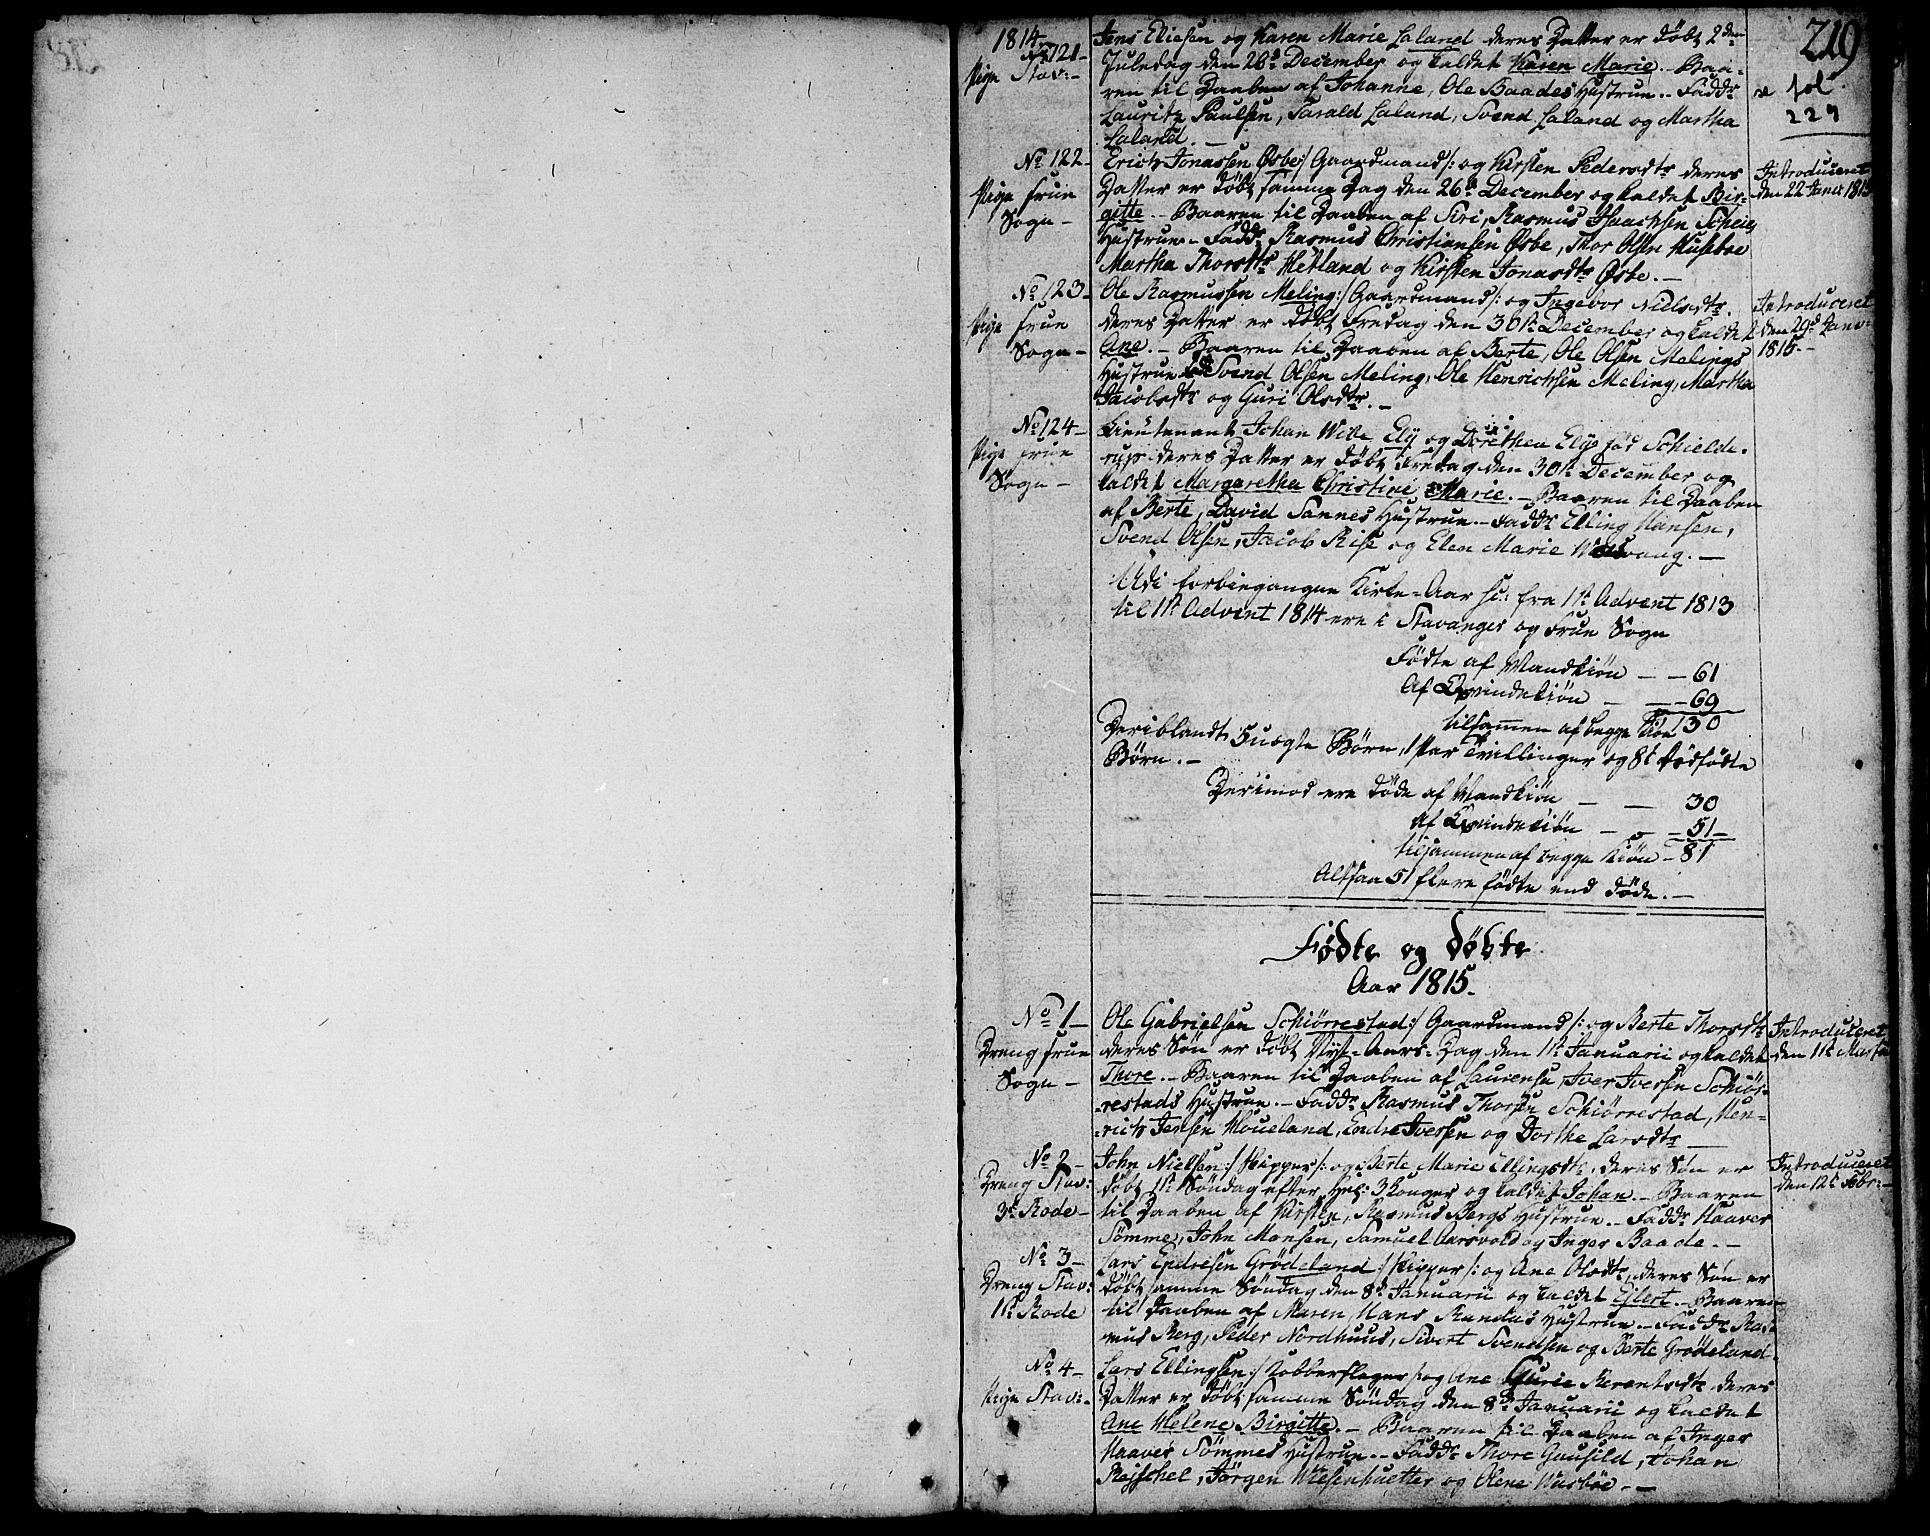 219
1814
No 121-
Pige Stav:-
Jens Eliesen og Karen Marie Laland deres Datter er døbt 2den
Juledag den 26d December og kaldet Karen Marie. - Baa-
ren til Daaben af Johanne, Ole Baades Hustrue. - Faddr
Lauritz Paulsen, Tarald Laland, Svend Laland og Martha
Laland. -
fol
229
No 122-
Pige Frue
Sogn -
Erich Jonassen Øsbe :/ Gaardmand /: og Kirsten Pedersdtr deres
Datter er døbt samme Dag den 26d December og kaldet Bir-
gitte. - Baaren til Daaben af Siri, Rasmus Isaachsen Scheies
Hustrue. - Faddr Rasmus Christiansen Øsbe, Thor Olsen Husebøe
Martha Thorsdtr Hetland og Kirsten Jonasdtr Øsbe. -
Introduceret
den 22 Janur 1815
No 123-
Pige Frue
Sogn -
Ole Rasmussen Meling :/ Gaardmand /: og Ingebor Nielsdtr.
deres Datter er døbt Fredag den 30te December og kaldet
Ane. - Baaren til Daaben af Berte, Ole Olsen Melings
Hustrue Svend Olsen Meling, Ole Henrichsen Meling, Martha
Jacobsdtr og Guri Olsdtr. -
Introduceret
den 29d Janu-
1815. -
No 124-
Pige Frue
Sogn -
Lieutenant Johan Ely og Dorethea Ely fød Schielde-
rup deres Datter er døbt Fredag den 30te December og
kaldet Margaretha Christine Marie. - Baaren til Daaben
af Berte, David Sannes Hustrue. - Faddr Elling Hansen,
Svend Olsen, Jacob Rise og Elen Marie -
Udi forbiegangne Kirke-Aar : fra 1te Advent 1813
til 1te Advent 1814 ere i Stavanger og Frue Sogn
Fødte af Mandkiøn - - 61
Af Qvindekiøn - - 69
tilsammen af begge Kiøn 130
Deriblandt 5 uægte Børn, 1 Par Tvillinger og 8te dødfødte
Børn. -
Derimod ere døde af Mandkiøn - - 30
af Qvindekiøn - - 51-
tilsammen af begge Kiøn - 81
Altsaa 51 flere fødte end døde. -
Fødte og døbte
Aar 1815.
No 1-
Dreng Frue
Sogn -
Ole Gabrielsen Schiørrestad :/ Gaardmand /: og Berte Thorsdtr
deres Søn er døbt Nyt-Aars-Dag den 1te Januarii og kaldet
Thore. - Baaren til Daaben af Laurense, Iver Iversen Schiør-
restads Hustrue. - Faddr Rasmus Thorsen Schiørrestad, Hen-
rich Jensen Moueland, Endre Iversen og Dorthe Larsdtr -
Introduceret
den 11te Martii
No 2-
Dreng Stav:
3d Rode -
John Nielsen :/ Skipper /: og Berte Marie Ellingsdtr, deres Søn er
døbt 1te Søndag efter Hel: 3 Konger og kaldet Johan. - Baaren
til Daaben af Kirsten, Rasmus Bergs Hustrue. - Faddr Haaver
Sømme, John Monsen, Samuel Aarsvold og Inger Baade. -
Introduceret
den 12te Febr: -
No 3-
Dreng Stav:
1te Rode
Lars Endresen Grødeland :/ Skipper /: og Ane Olsdtr, deres Søn er
døbt samme Søndag den 8d Januarii og kaldet Eilert. - Baaren
til Daaben af Maren Hans Hustrue. - Faddr Ras-
mus Berg, Peder Nordhuus, Sivert Svendsen og Berte Grødeland.
No 4-
Pige Stav:-
Lars Ellingsen :/ Kobberslager /: og Ane Gurie Berentsdtr deres
Datter er døbt samme Søndag den 8d Januarii og kaldet
Ane Helene Birgitte. - Baaren til Daaben af Inger
Haaver Sømmes Hustrue. - Faddr Thore Gausild, Johan
Jørgen Wiesenhuetter og Olene Husbøe. -